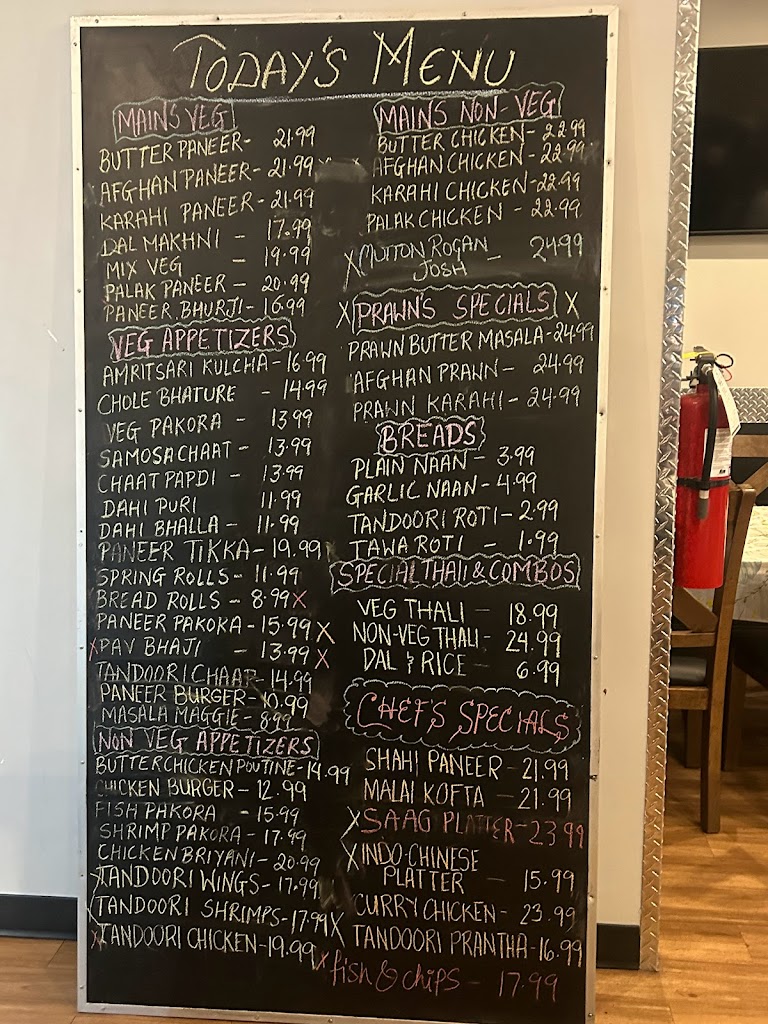 TODAY'S MENU
MAINS VEG
BUTTER PANEER- 21.99
AFGHAN PANEER- 21.99
KARAHI PANEER- 21.99
DAL MAKHNI - 17.99
MIX VEG - 19.99
PALAK PANEER - 20.99
PANEER BHURJI- 16.99
VEG APPETIZERS
AMRITSARI KULCHA- 16.99
CHOLE BHATURE - 14.99
VEG PAKORA - 13.99
SAMOSA CHAAT - 13.99
CHAAT PAPDI - 13.99
DAHI PURI 11.99
DAHI BHALLA - 11.99
PANEER TIKKA- 19.99
SPRING ROLLS- 11.99
BREAD ROLLS - 8.99 X
PANEER PAKORA- 15.99 X
X PAV BHAJI - 13.99 X
TANDOORI CHAAP- 14.99
PANEER BURGER- 10.99
MASALA MAGGIE- 8.99
NON VEG APPETIZERS
BUTTER CHICKEN POUTINE- 14.99
CHICKEN BURGER- 12.99
FISH PAKORA - 15.99
SHRIMP PAKORA- 17.99
CHICKEN BRIYANI- 20.99
X TANDOORI WINGS- 17.99
TANDOORI SHRIMPS- 17.99 X
X TANDOORI CHICKEN- 19.99
MAINS NON-VEG
BUTTER CHICKEN- 22.99
AFGHAN CHICKEN- 22.99
KARAHI CHICKEN- 22.99
PALAK CHICKEN - 22.99
X MUTTON ROGAN
JOSH - 24.99
X PRAWN'S SPECIALS X
PRAWN BUTTER MASALA- 24.99
AFGHAN PRAWN- 24.99
PRAWN KARAHI- 24.99
BREADS
PLAIN NAAN - 3.99
GARLIC NAAN- 4.99
TANDOORI ROTI- 2.99
TAWA ROTI - 1.99
SPECIAL THALI & COMBOS
VEG THALI - 18.99
NON-VEG THALI- 24.99
DAL & RICE - 6.99
CHEF'S SPECIALS
SHAHI PANEER- 21.99
MALAI KOFTA - 21.99
X SAAG PLATTER- 23.99
X INDO-CHINESE
PLATTER - 15.99
CURRY CHICKEN- 23.99
TANDOORI PRANTHA- 16.99
X fish & chips - 17.99